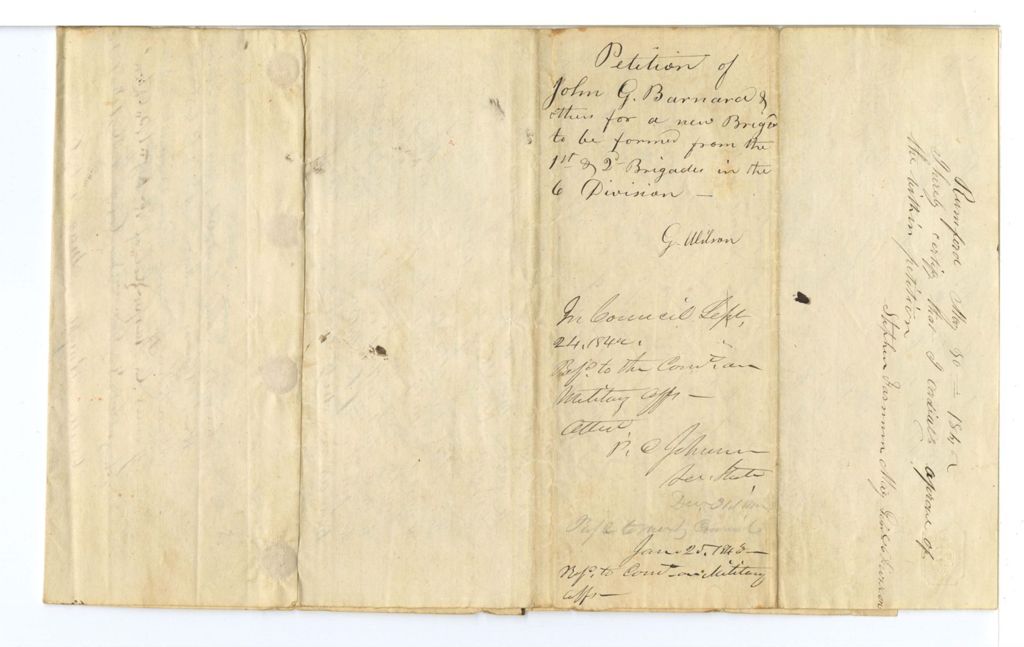 Petition of
John G. Barnard &
others for a new Brigde
to be formed from the
1st & 2d Brigades in the
6 Division —
G. Wilson
In Council Sept,
24, 1842.
Refd. to the Comtee on
Military affs —
Attest
P. C Johnson
Sec. State
Dec. 31, 1842
Refd to next Council
Jan. 25, 1843 —
Refd. to Comt on Military
affs —
Rumford May 30 — 1842
I hereby certify that I cordialy aprove of
the within petition
Stephen Farnum Maj